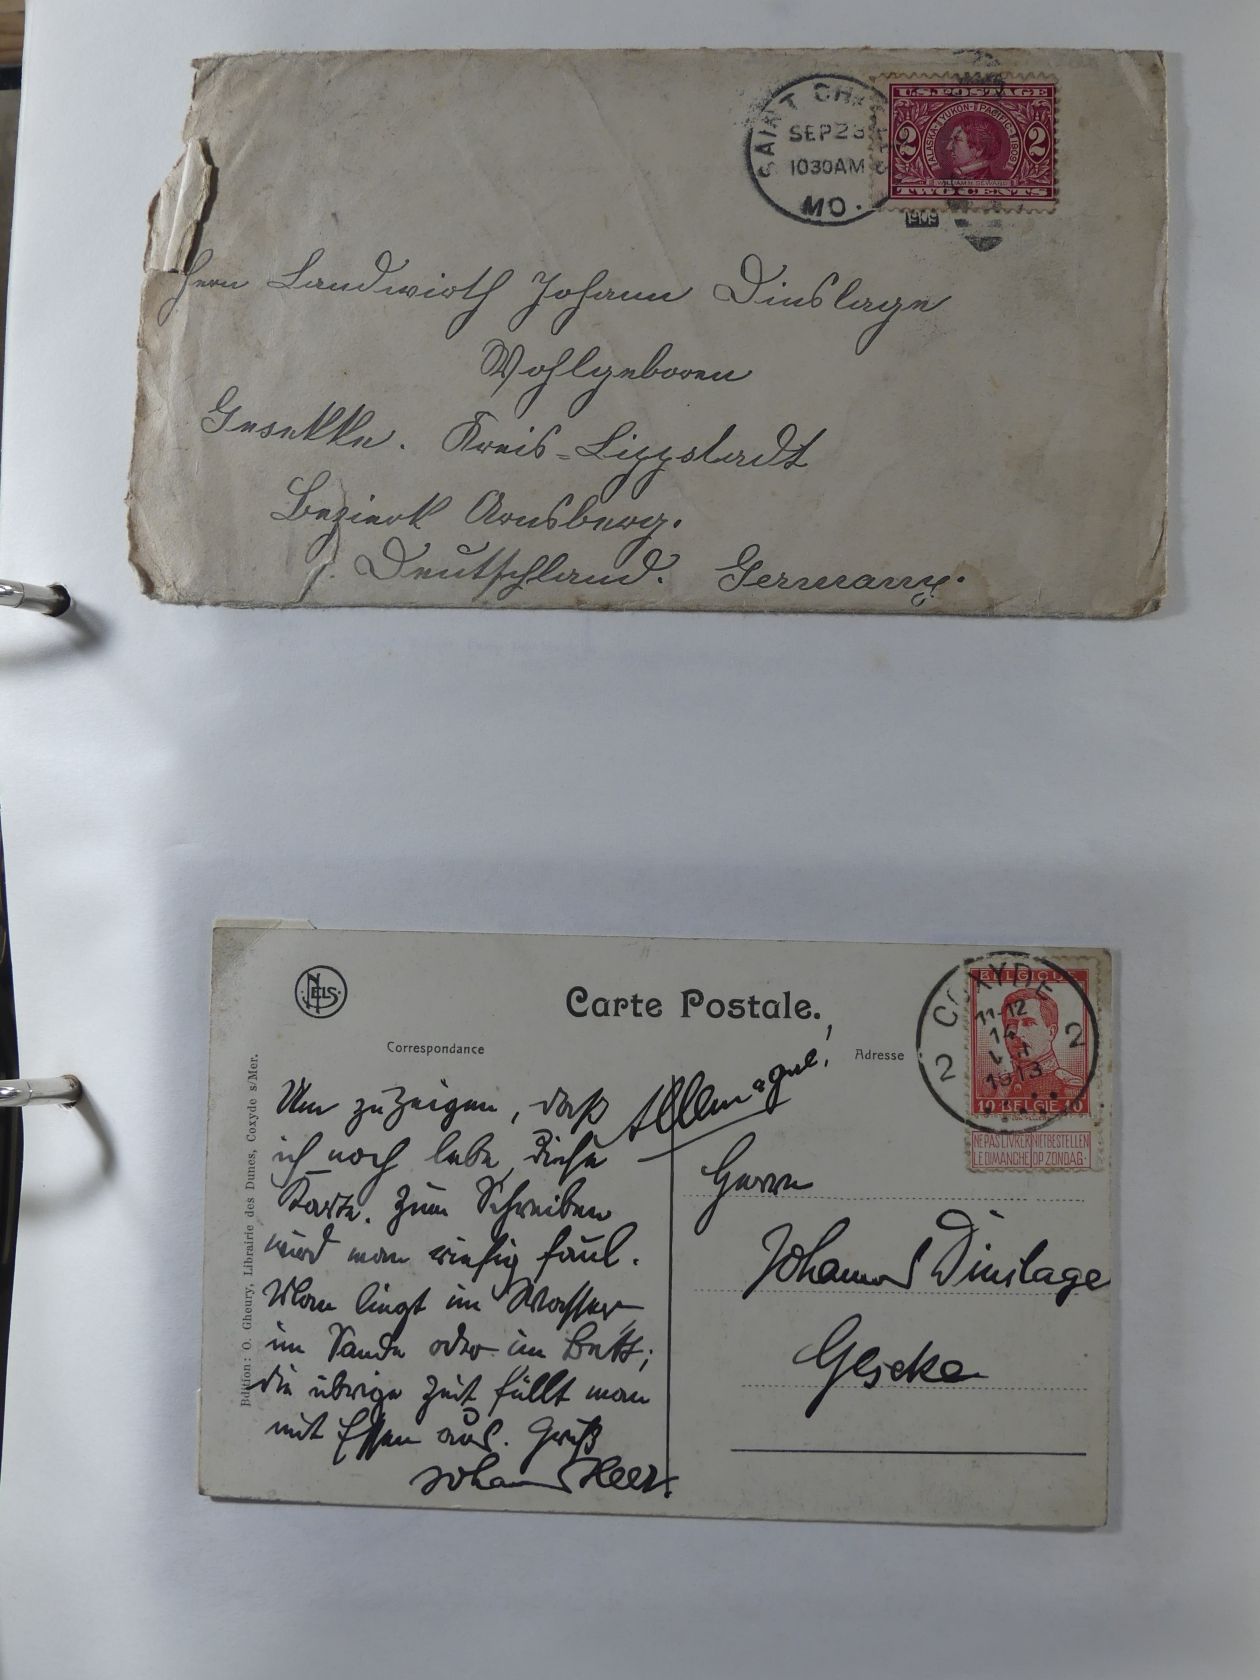 SAINT CH
SEP 23
1030AM
MO.
1909
U.S. POSTAGE
ALASKA-YUKON-PACIFIC-1909
2 2
WILLIAM H. SEWARD
TWO CENTS
Herrn Landwirth Johann Dinslage
Wohlgeboren
Gesekke. Kreis-Lippstadt
Bezierk Arnsberg.
Deutschland. Germany.
NELS
Carte Postale.
Correspondance
Adresse
COXYDE
11-12
14
1913
2 2
BELGIQUE
10 BELGIË 10
NE PAS LIVRER LE DIMANCHE
NIET BESTELLEN OP ZONDAG
Edition: O. Gheury, Librairie des Dunes, Coxyde s/Mer.
Allemagne!
Um zu zeigen, daß
ich noch lebe, diese
Karte. Zum Schreiben
wird man riesig faul.
Man liegt im Wasser,
im Sande oder im Bett;
die übrige Zeit füllt man
mit Essen aus. Gruß
Johannes
Herrn
Johannes Dinslage
Geseke